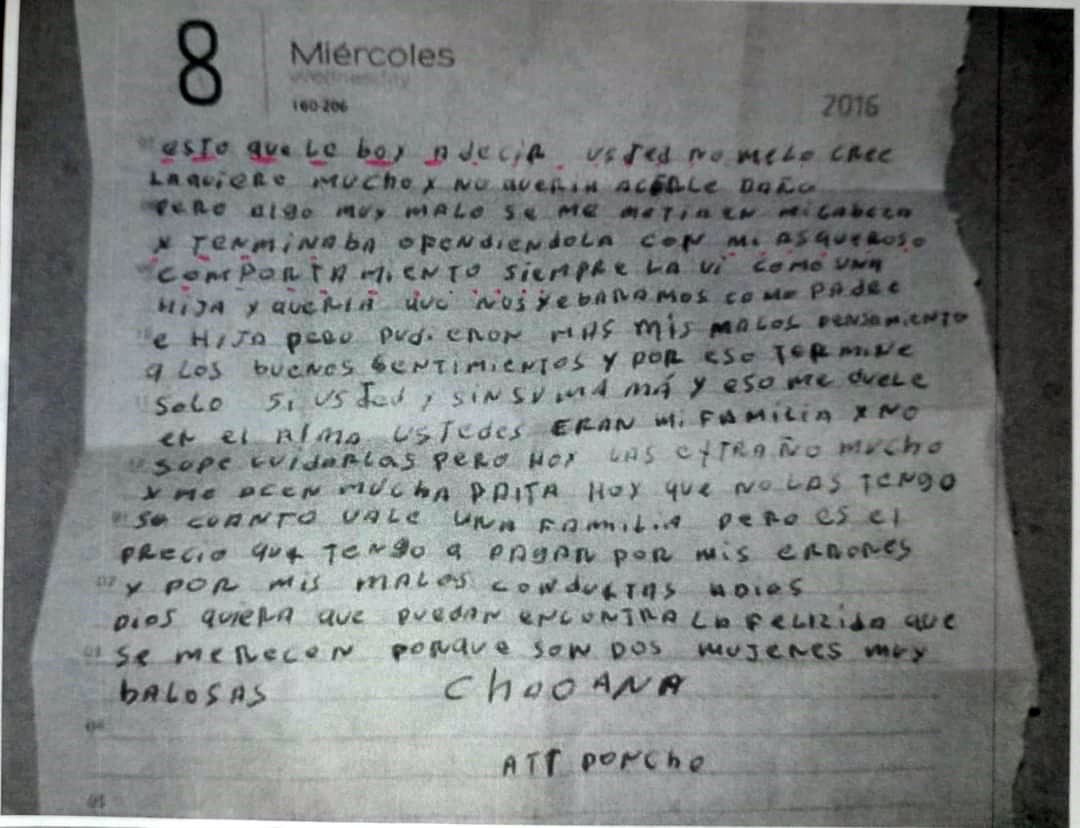 8
Miércoles
Wednesday
160-206
2016
esto que le boy a decir usted no me lo cree
la quiero mucho y no queria acerle daño
pero algo muy malo se me metia en mi cabeza
y terminaba ofendiendola con mi asqueroso
comportamiento siempre la vi como una
hija y queria que nos yebaramos como padre
e hija pero pudieron mas mis malos pensamiento
a los buenos sentimientos y por eso termine
solo si usted y sin su mamá y eso me duele
en el alma ustedes eran mi familia y no
supe cuidarlas pero hoy las extraño mucho
y me acen mucha hoy que no las tengo
se cuanto vale una familia pero es el
precio que tengo a pagar por mis errores
y por mis malos conductas adios
Dios quiera que puedan encontra la felizida que
se merecen porque son dos mujeres muy
balosas
att poncho